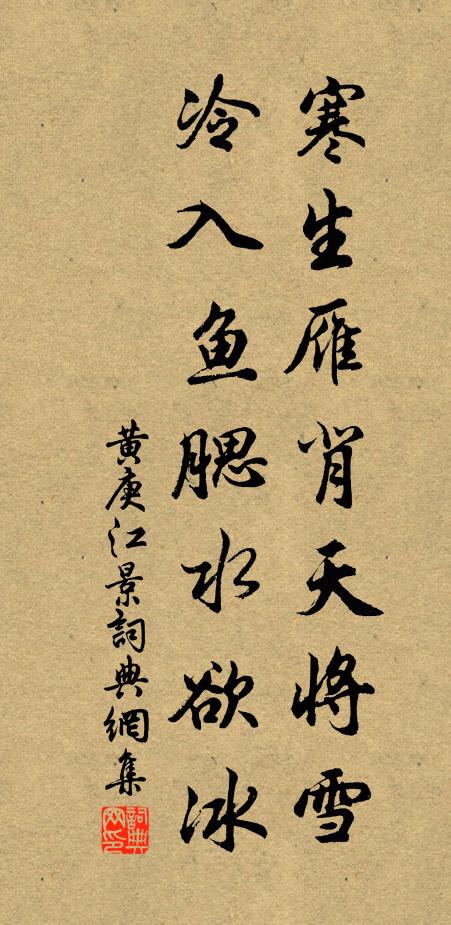 寒生雁背天将雪
冷入鱼腮水欲冰
黄庚江景詞典網集
詞典網印